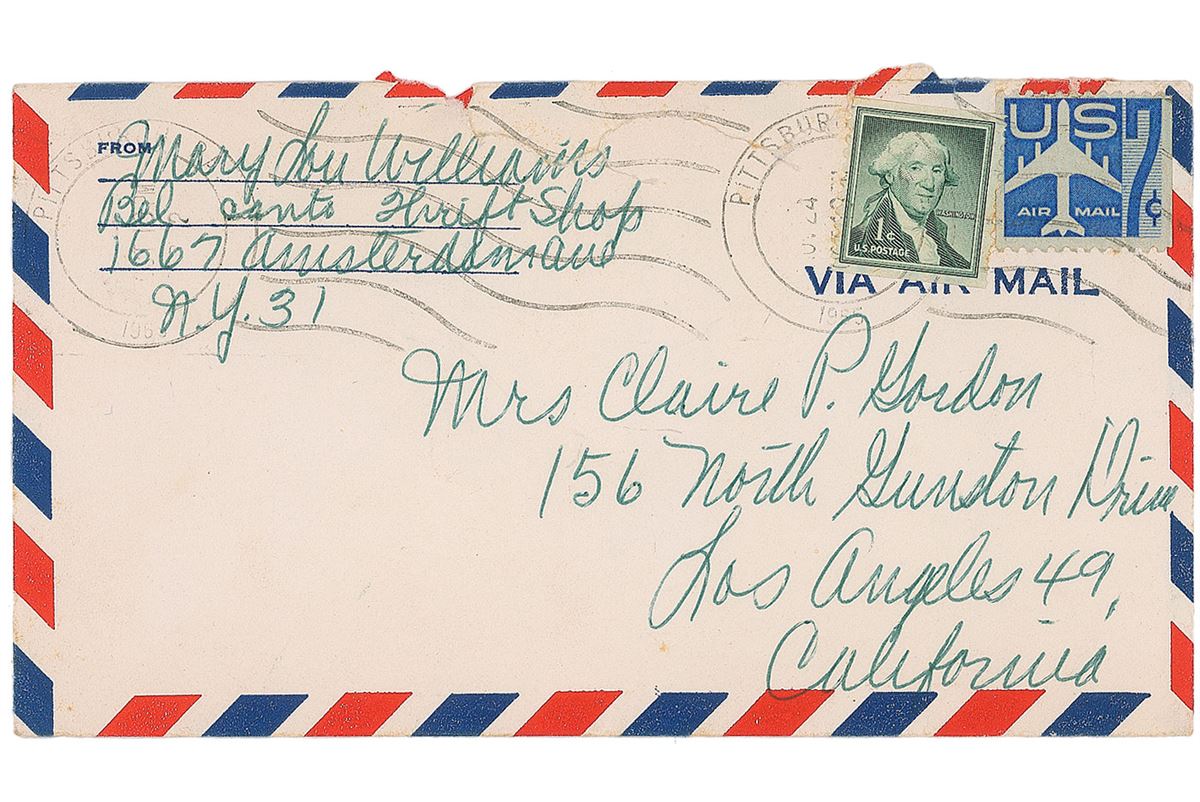 FROM Mary Lou Williams
Bel canto Thrift Shop
1667 Amsterdam Ave
N.Y. 31
PITTSBURGH
WASHINGTON
1¢
U.S. POSTAGE
US 7¢
AIR MAIL
VIA AIR MAIL
Mrs Claire P. Gordon
156 North Gunston Drive
Los Angeles 49,
California